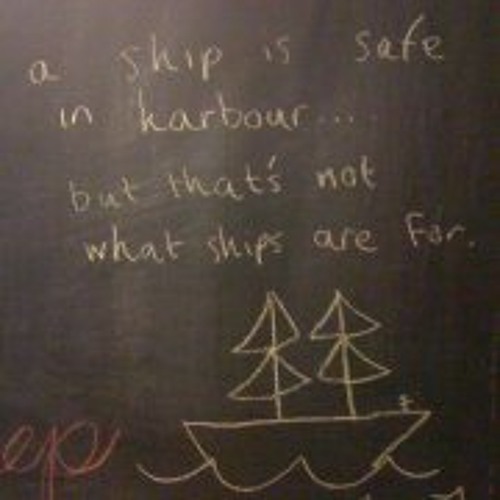 a ship is safe
in harbour...
but that's not
what ships are for.
ep